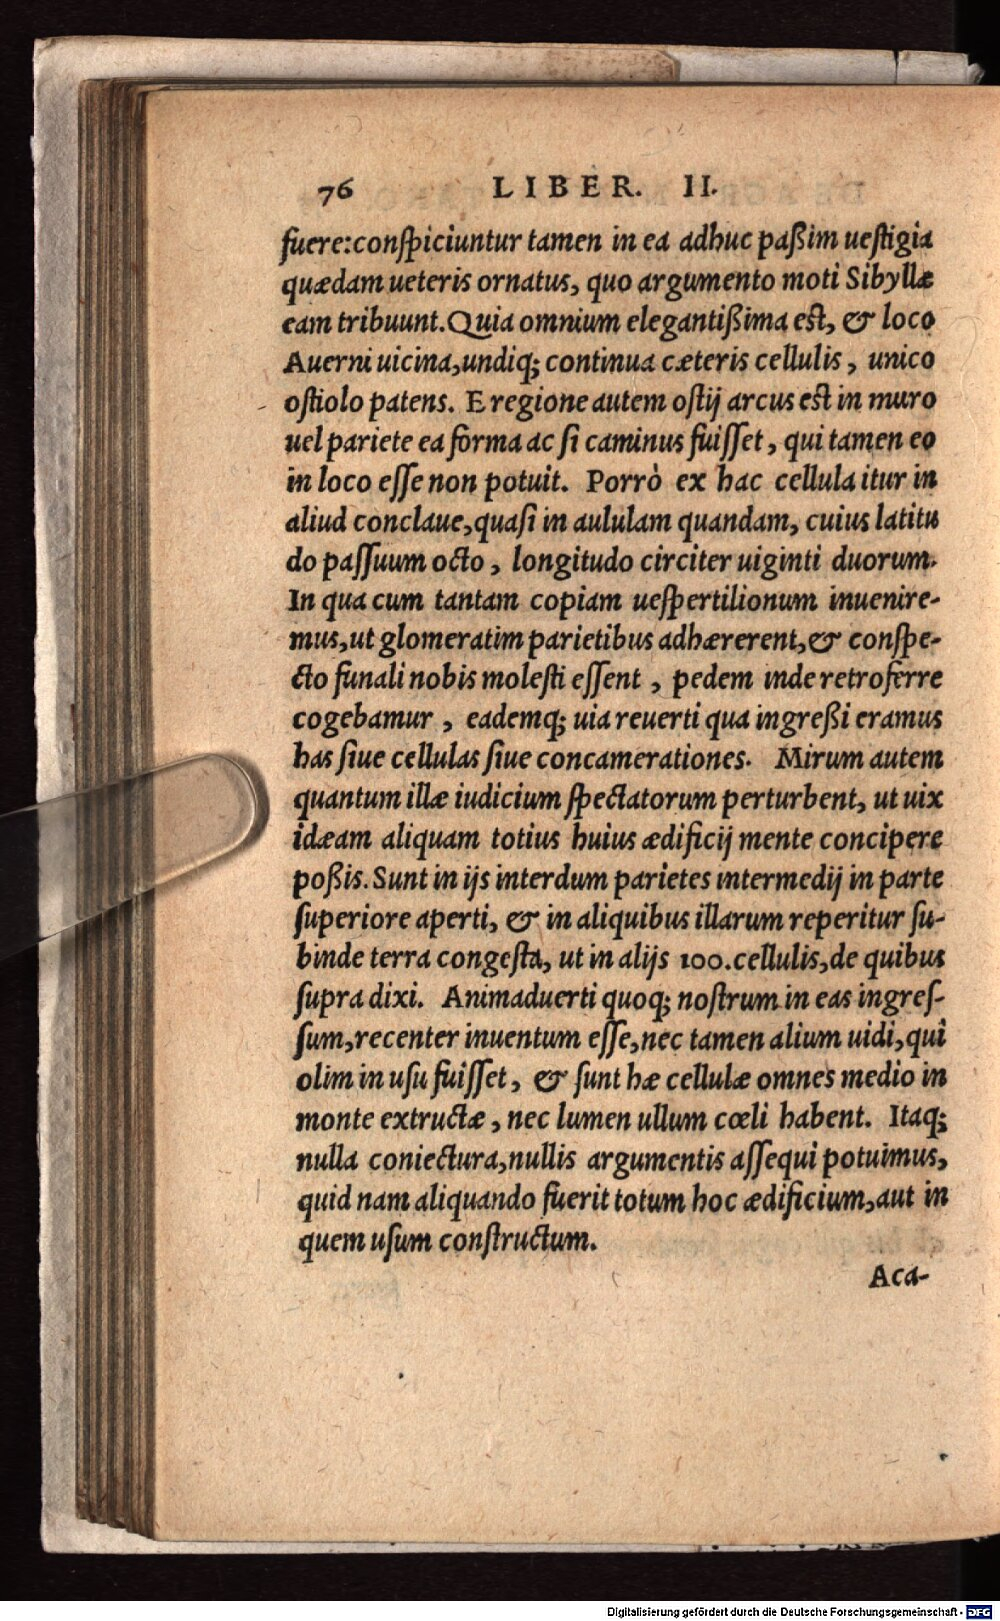 76 LIBER. II.
fuere:conspiciuntur tamen in ea adhuc paßim uestigia
quædam ueteris ornatus, quo argumento moti Sibyllæ
eam tribuunt. Quia omnium elegantißima est, & loco
Auerni uicina, undiq; continua cæteris cellulis, unico
ostiolo patens. E regione autem ostij arcus est in muro
uel pariete ea forma ac si caminus fuisset, qui tamen eo
in loco esse non potuit. Porrò ex hac cellula itur in
aliud conclaue, quasi in aululam quandam, cuius latitu
do passuum octo, longitudo circiter uiginti duorum.
In qua cum tantam copiam uespertilionum inuenire-
mus, ut glomeratim parietibus adhærerent, & conspe-
cto funali nobis molesti essent, pedem inde retroferre
cogebamur, eademq; uia reuerti qua ingreßi eramus
has siue cellulas siue concamerationes. Mirum autem
quantum illæ iudicium spectatorum perturbent, ut uix
idæam aliquam totius huius ædificij mente concipere
poßis. Sunt in ijs interdum parietes intermedij in parte
superiore aperti, & in aliquibus illarum reperitur su-
binde terra congesta, ut in alijs 100. cellulis, de quibus
supra dixi. Animaduerti quoq; nostrum in eas ingres-
sum, recenter inuentum esse, nec tamen alium uidi, qui
olim in usu fuisset, & sunt hæ cellulæ omnes medio in
monte extructæ, nec lumen ullum cœli habent. Itaq;
nulla coniectura, nullis argumentis assequi potuimus,
quid nam aliquando fuerit totum hoc ædificium, aut in
quem usum constructum.
Aca-
Digitalisierung gefördert durch die Deutsche Forschungsgemeinschaft - DFG